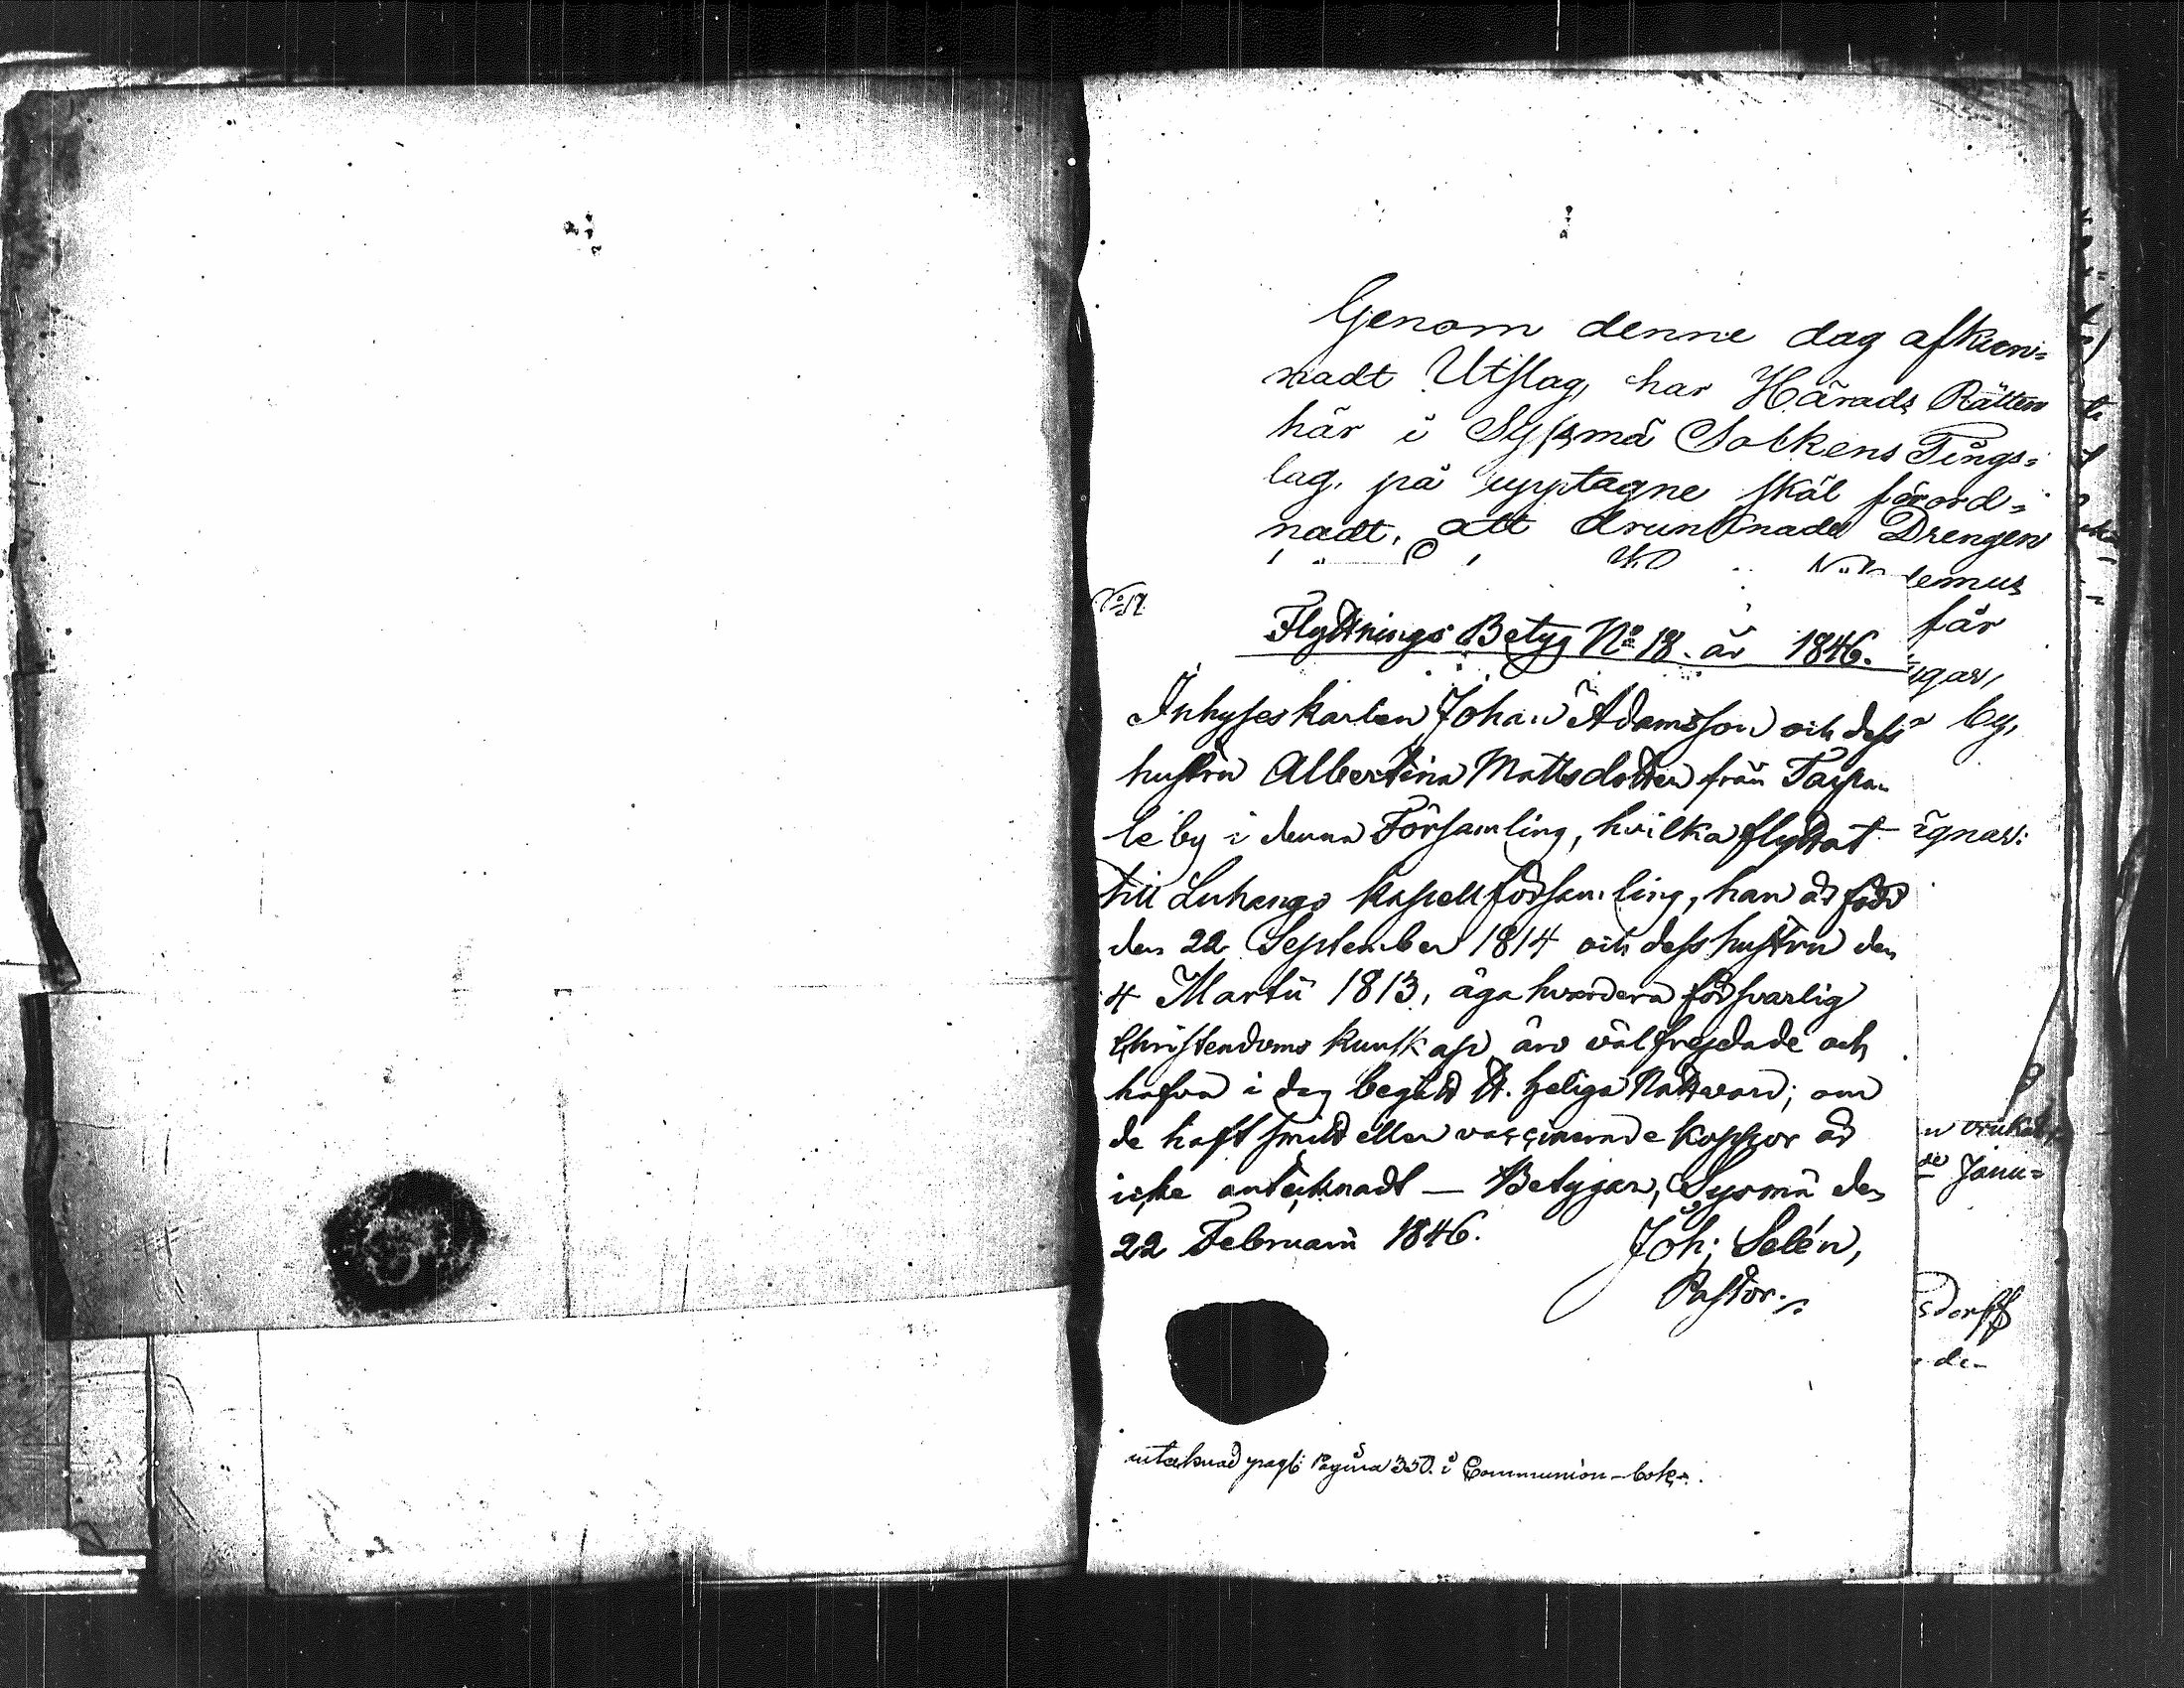 Genom denne dag afkun-
nadt Utslag, har Härads Rätten
här i Syssmä Sokkens Tings-
lag, på upptagne skäl förord-
nadt, att drunknade Drengen
lemus
får
Flyttnings Betyg No 18. år 1846.
ugar,
Inhyses karlen Johan Adamsson och dess
by,
hustru Albertina Mattsdotter från Taipa-
le by i denna Församling, hvilka flyttat
ägnar:
till Luhango Kapellförsamling, han är född
den 22 September 1814 och dess hustru den
4 Martii 1813, äga hvardera försvarlig
Christendoms kunskap, äro välfrejdade och
hafva i dag begått H. heliga Nattvard; om
de haft smitt eller vaccinerade koppor är
icke antecknadt — Betygar, Sysmä den
Janu-
22 Februarii 1846. Joh: Selén,
Pastor.
sdorff
pagina 350. i Communion-boken.